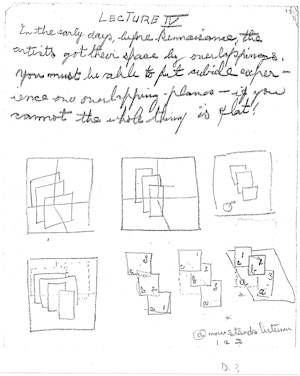 LECTURE IV
In the early days, before Renaissance, the
artists got their space by overlappings.
You must be able to put cubicle exper-
ience one overlapping planes - if you
cannot the whole thing is flat!
3 1 1
b 2 2 b 2
a a 1 a 3
a
1 & 2
D.3